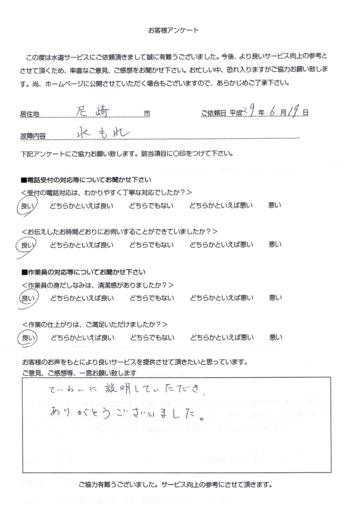 お客様アンケート
この度は水道サービスにご依頼頂きまして誠に有難うございました。今後、より良いサービス向上の参考と
させて頂くため、率直なご意見、ご感想をお聞かせ下さい。お忙しい中、恐れ入りますがご協力お願い致しま
す。尚、ホームページに公開させていただく場合もございますので、あらかじめご了承下さい。
居住地 尼崎 市 ご依頼日 平成29年6月19日
故障内容 水もれ
下記アンケートにご協力お願い致します。該当項目に〇印をつけて下さい。
■電話受付の対応等についてお聞かせ下さい
<受付の電話対応は、わかりやすく丁寧な対応でしたか?>
良い どちらかといえば良い どちらでもない どちらかといえば悪い 悪い
<お伝えしたお時間どおりにお伺いすることができていましたか?>
良い どちらかといえば良い どちらでもない どちらかといえば悪い 悪い
■作業員の対応等についてお聞かせ下さい
<作業員の身だしなみは、清潔感がありましたか?>
良い どちらかといえば良い どちらでもない どちらかといえば悪い 悪い
<作業の仕上がりは、ご満足いただけましたか?>
良い どちらかといえば良い どちらでもない どちらかといえば悪い 悪い
お客様のお声をもとにより良いサービスを提供させて頂きたいと思っています。
ご意見、ご感想等、一言お願い致します
ていねいに説明していただき、
ありがとうございました。
ご協力有難うございました。サービス向上の参考にさせて頂きます。